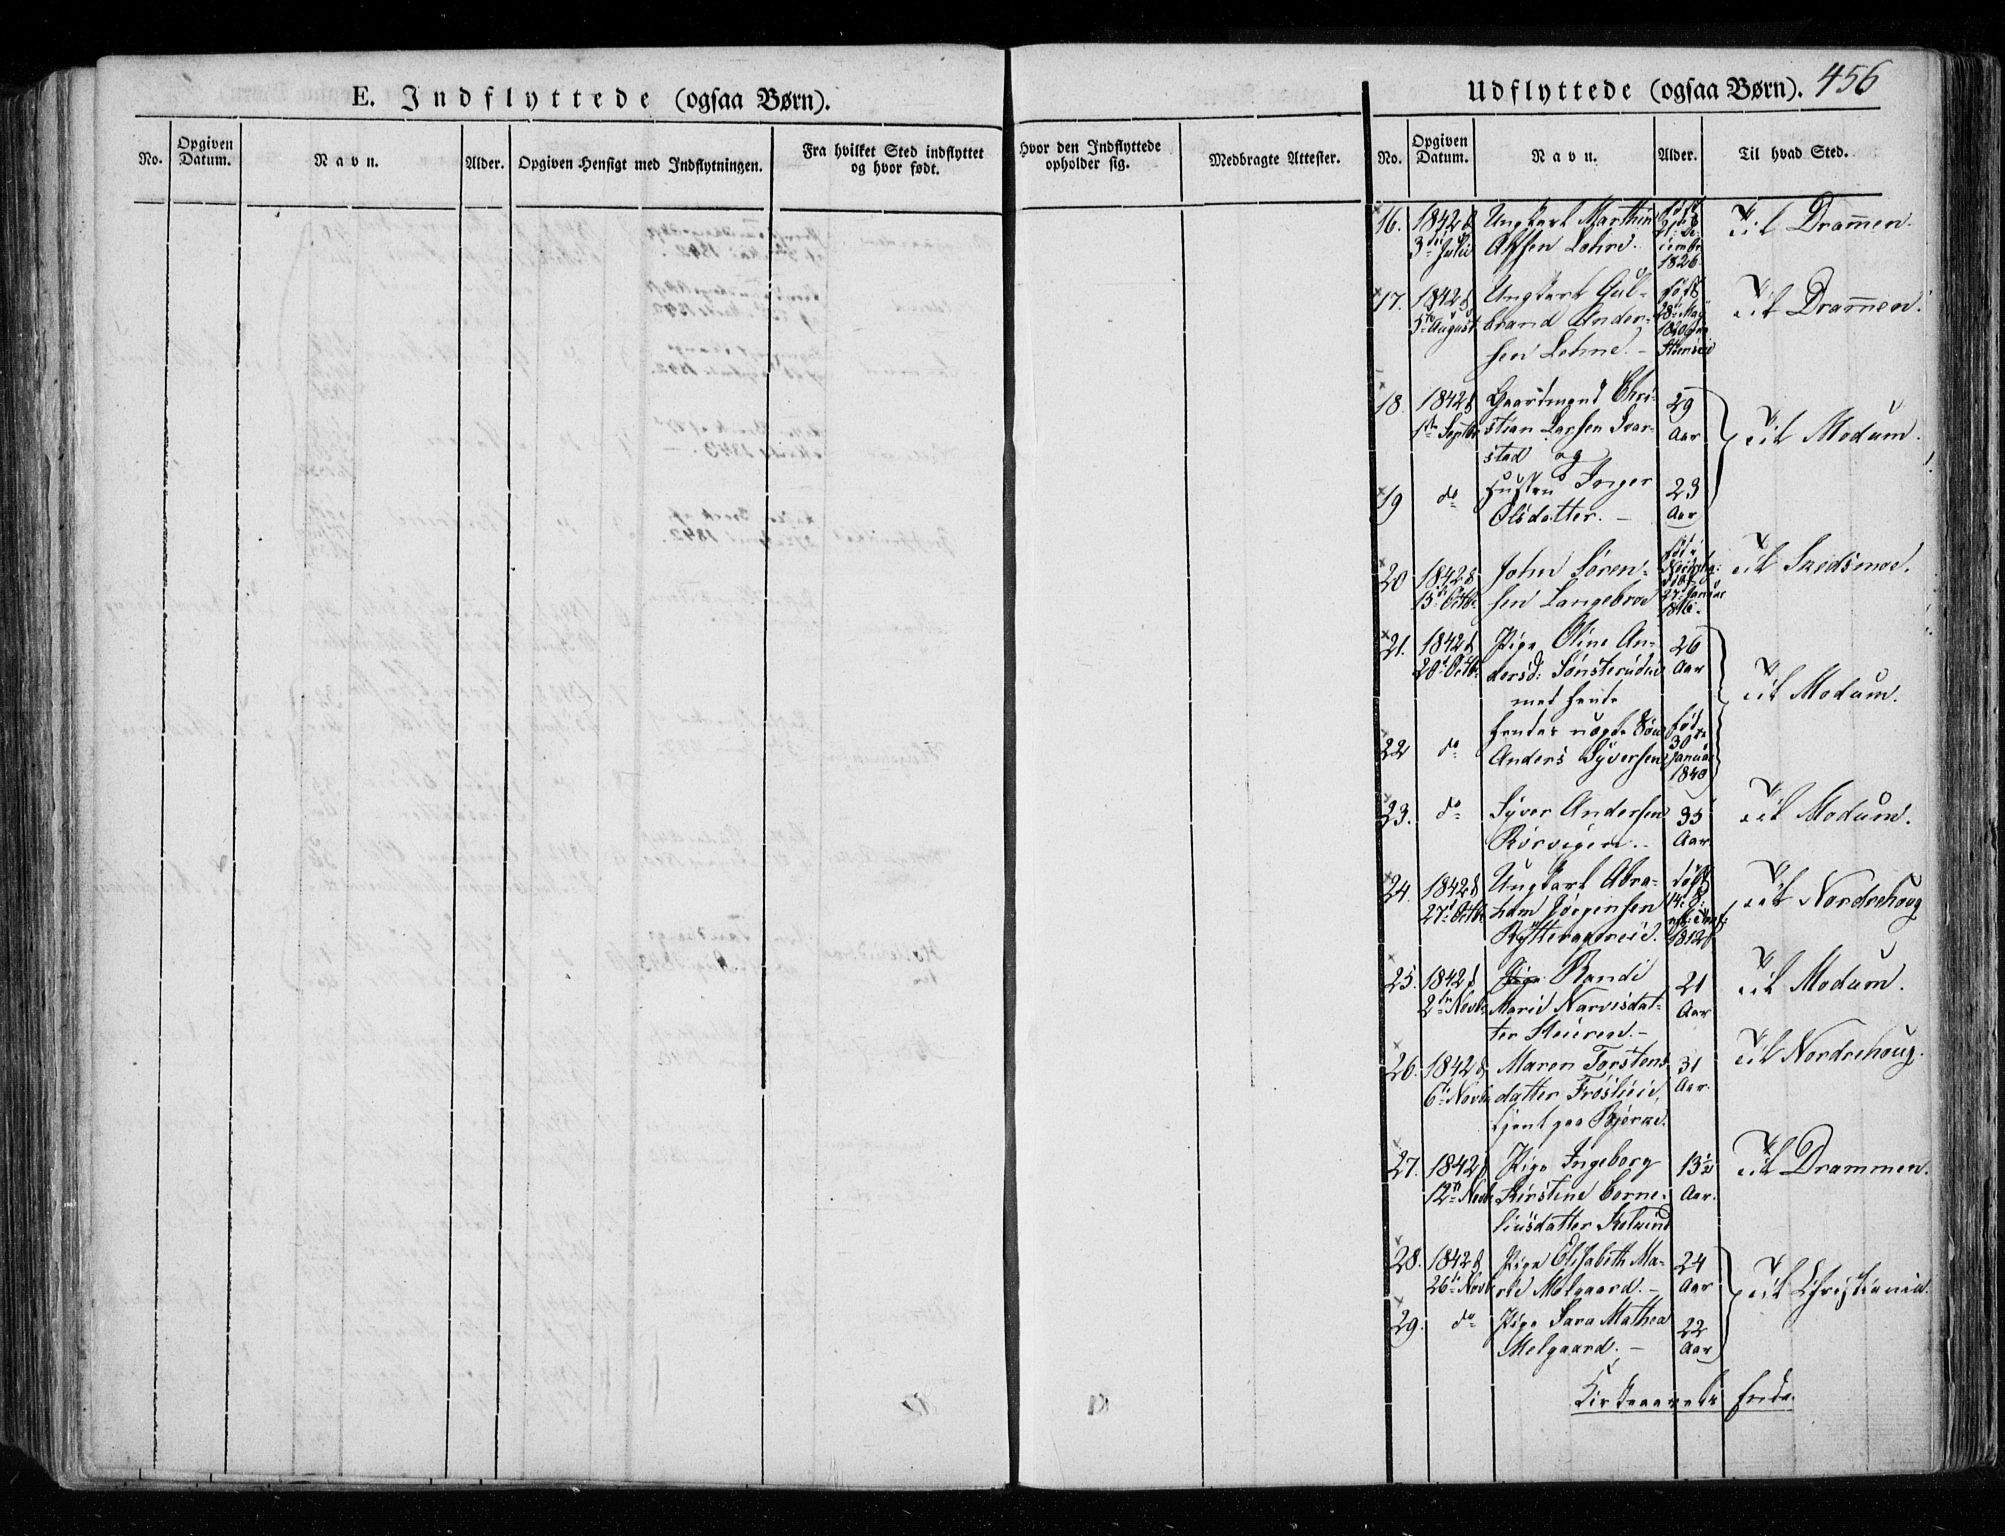 E. Indflyttede (ogsaa Børn).
Udflyttede (ogsaa Børn). 456
No.
Opgiven Datum.
Navn.
Alder.
Opgiven Hensigt med Indflytningen.
Fra hvilket Sted indflyttet og hvor født.
Hvor den Indflyttede opholder sig.
Medbragte Attester.
No.
Opgiven Datum.
Navn.
Alder.
Til hvad Sted.
16. 1842 d 3die Julii Ungkarl Marthin Alfsen Lehne. født 21 December 1826. Til Dramen.
17. 1842 d 5te August Ungkarl Gulbrand Andersen Lehne. – født 28 Maj 1820 Til Dramen.
18. 1842 d 1ste Septbr Gaardmand Christian Larsen Svarstad og 29 Aar
19 do Hustru Inger Olsdatter. – 23 Aar
Til Modum.
20 1842 d 15 Octbr John Sørensen Langebroe født 27 Januar 1816. Til Skedsmoe.
21. 1842 d 20 Octbr Pige Oline Andersd: Sønsterudeie med hende 26 Aar
22 do hendes uægte Søn Anders Syversen født 30te Januar 1840
Til Modum.
23. do Syver Andersen Rørvigen. 35 Aar Til Modum.
24. 1842 d 27 Octbr Ungkarl Abraham Jørgensen Rytterager eie. født 1812 Til Nordrehoug
25. 1842 d 2den Novbr Randi Marie Narvesdatter Steieren. – 21 Aar Til Modum.
26. 1842 d 6te Novbr Maren Torstensdatter Frøslieeie, tjent paa Bjerke. 31 Aar. Til Nordrehoug.
27. 1842 d 12te Novbr Pige Ingeborg Kirstine Corneliusdatter 13½ Aar. Til Drammen.
28. 1842 d 26te Novbr Pige Elisabeth Marie Melgaard. – 24 Aar
29. do Pige Sara Mathea Melgaard. – 22 Aar
Til Christiania.
Kirkeaarets Ende.